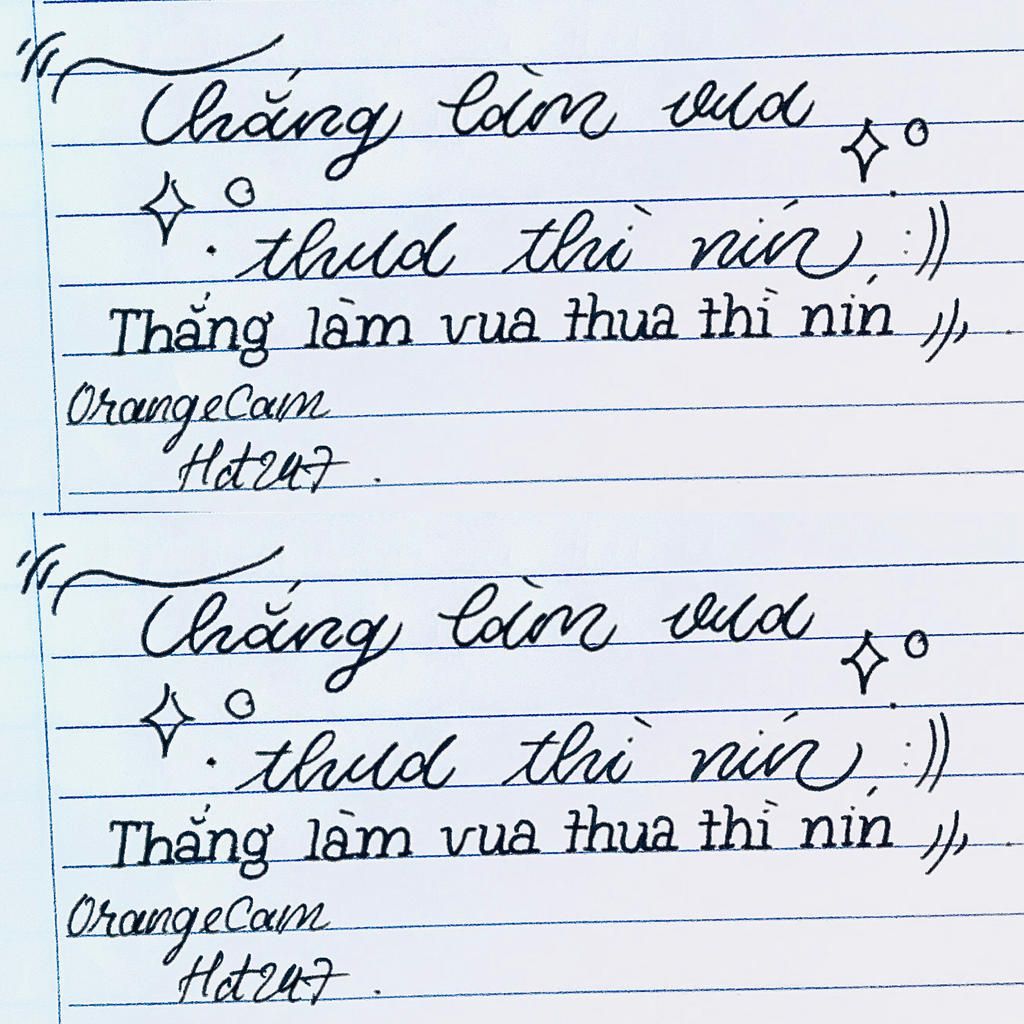 Thắng làm vua
thua thì nín :))
Thắng làm vua thua thì nín
OrangeCam
Hdt247.
Thắng làm vua
thua thì nín :))
Thắng làm vua thua thì nín
OrangeCam
Hdt247.